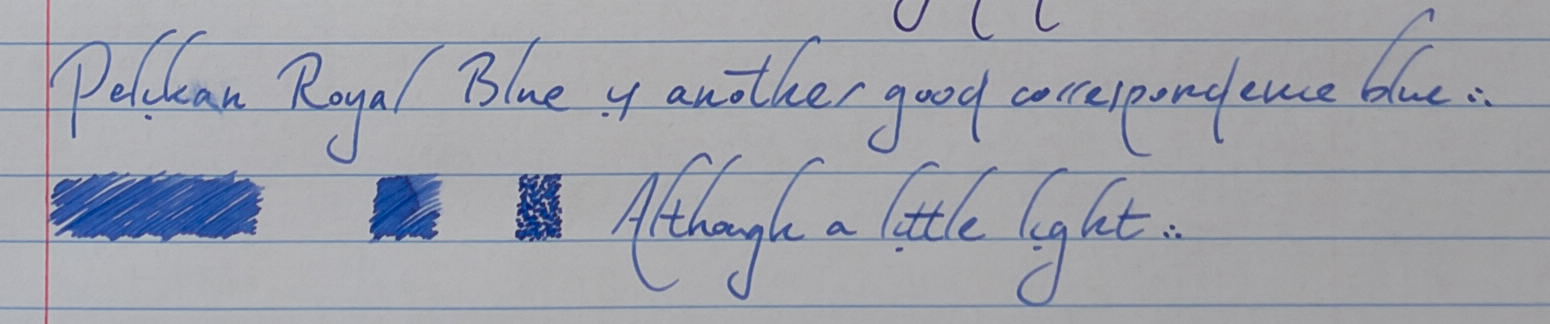 Pelikan Royal Blue is another good correspondence blue :.
Although a little light :.